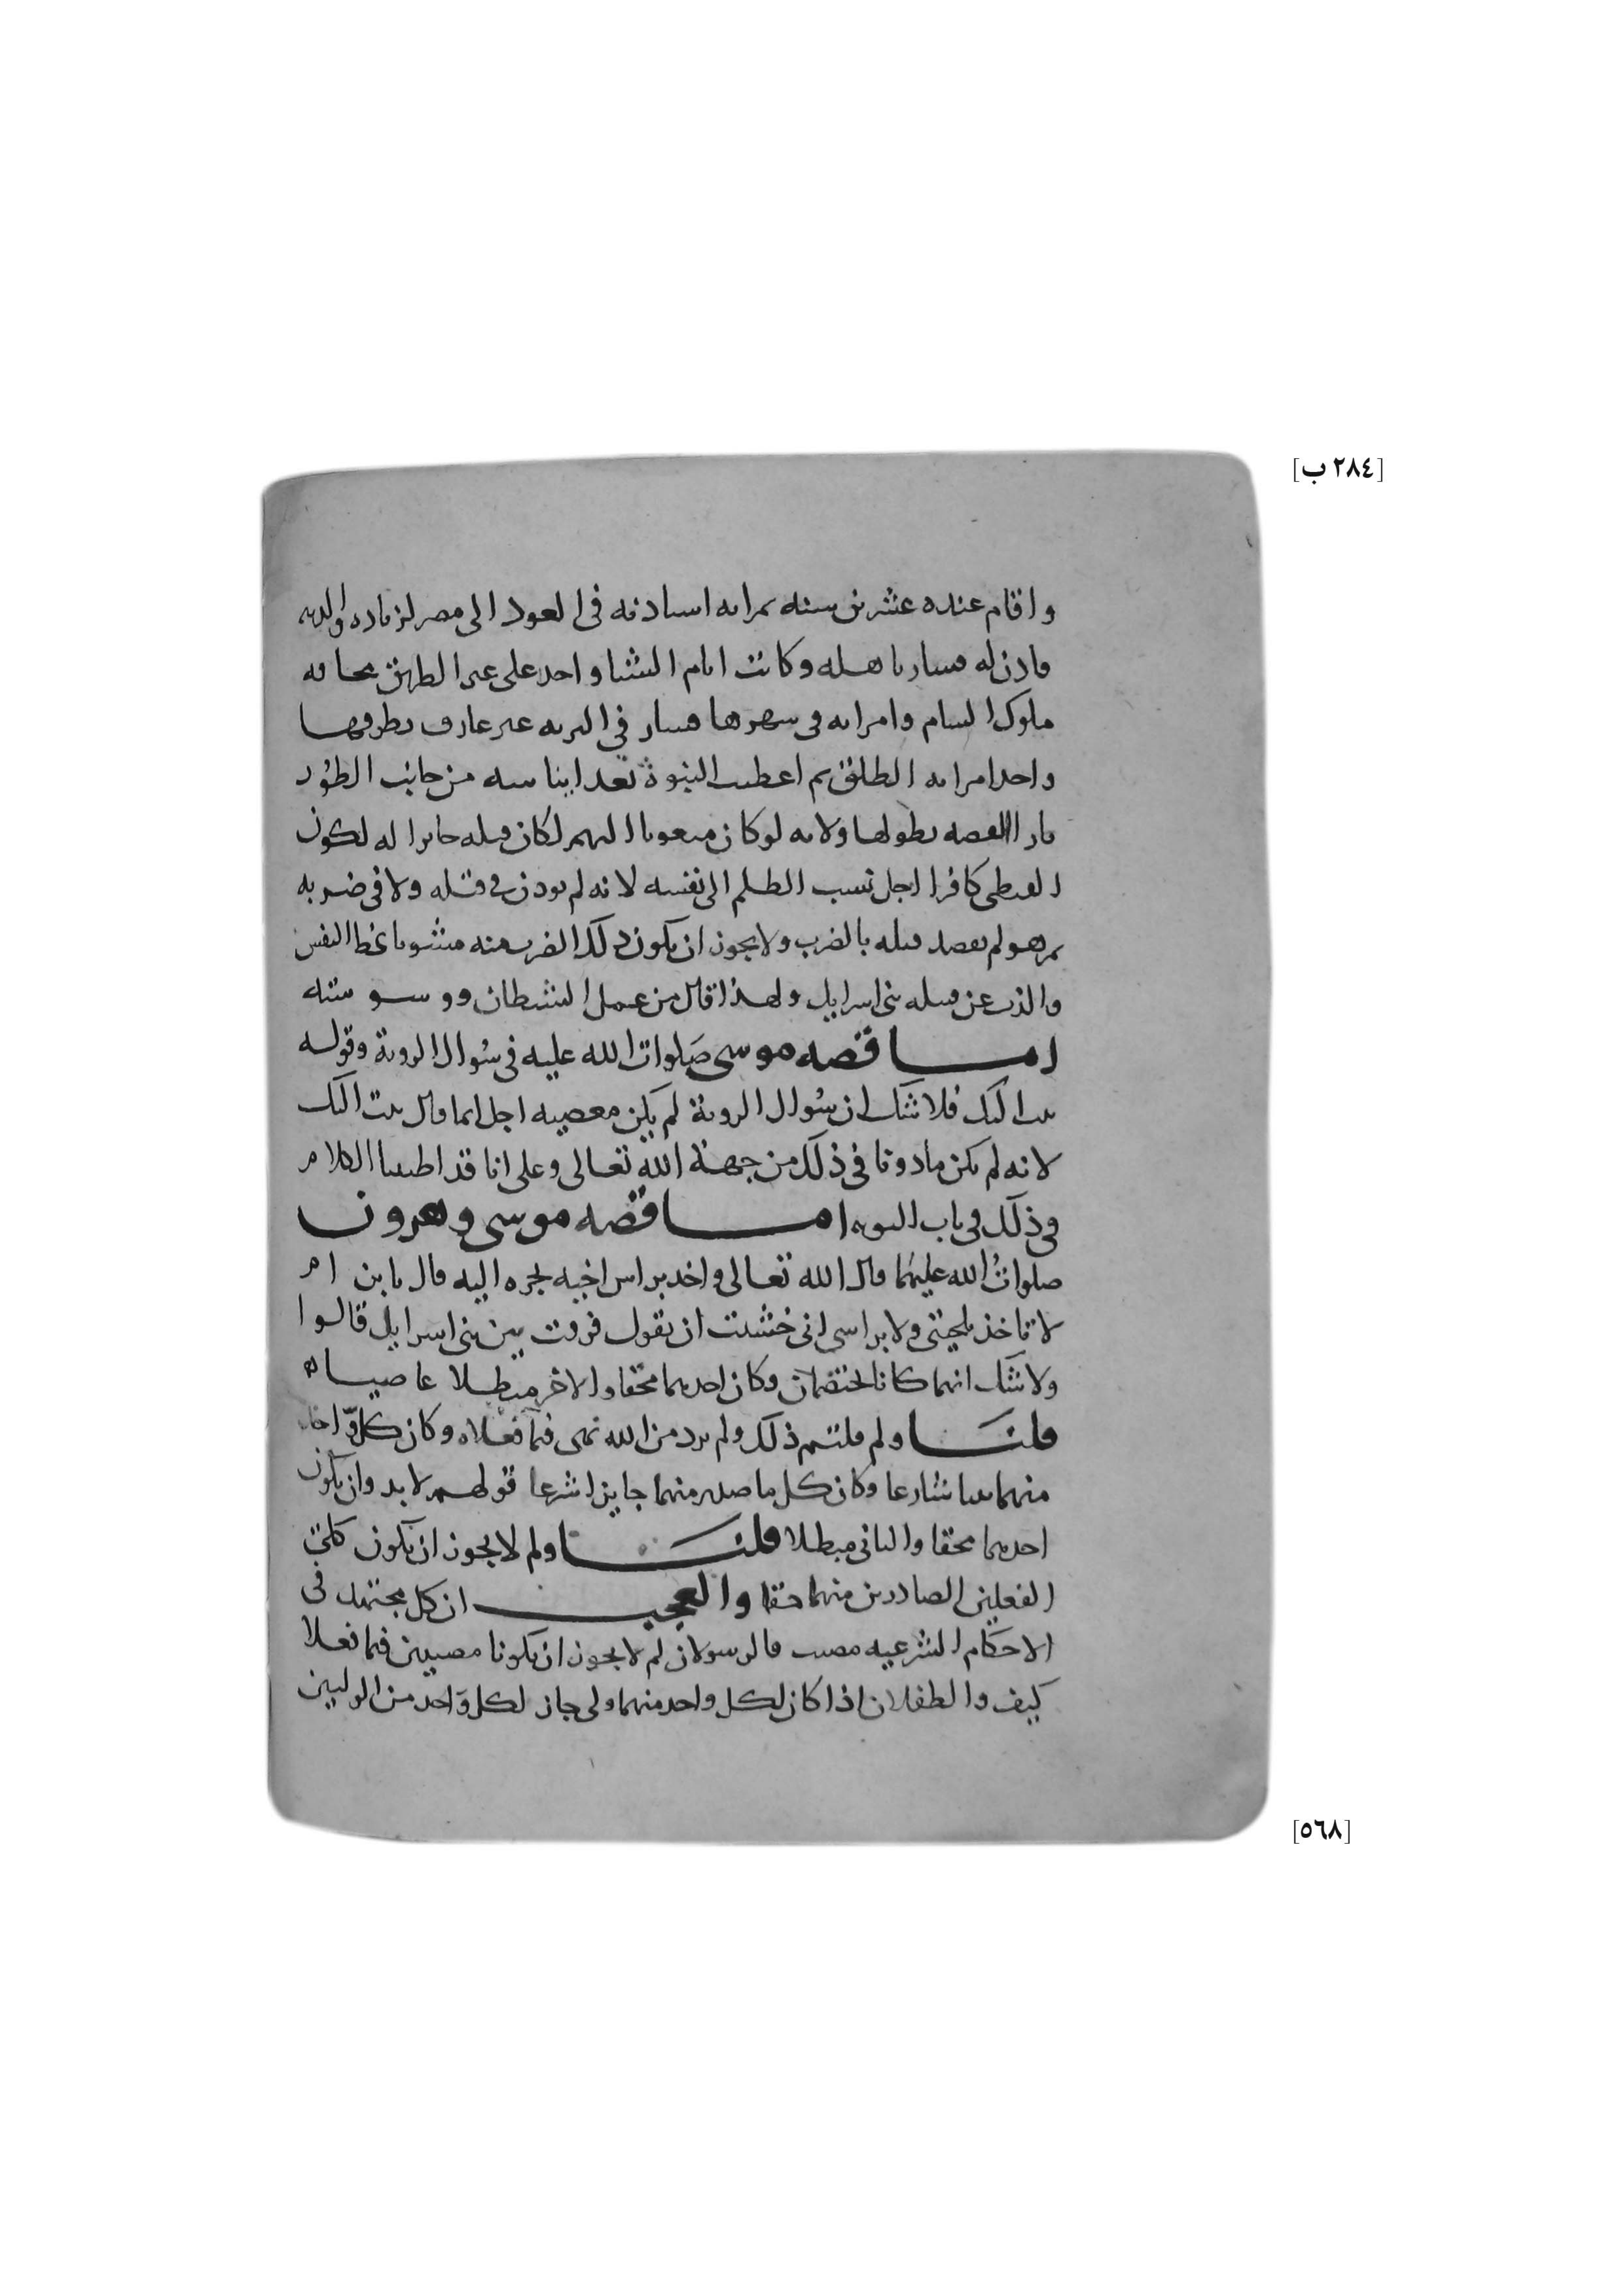 [٢٨٤ ب]
واقام عنده عشرين سنه ثم انه استاذنه في العود الى مصر لزياده والديه
فاذن له فسار باهله وكانت ايام الشتا واخذ على غير الطريق مخافه
ملوك الشام وامراته في شهرها فسار في البريه غير عارف بطرقها
واخذ امراته الطلق ثم اعطى النبوة بعد ايناسه من جانب الطور
نارا القصه بطولها ولانه لو كان مبعوثا اليهم لكان قتله جايزا له لكون
القبطي كافرا اجل نسب الظلم الى نفسه لانه لم يوذن في قتله ولا في ضربه
ثم هو لم يقصد قتله بالضرب ولا يجوز ان يكون ذلك الضرب منه مشوبا بحظ النفس
والذب عن قبيله بني اسرايل ولهذا قال من عمل الشيطان ووسوسته
اما قصه موسى صلوات الله عليه في سوال الروية وقوله
تبت اليك فلا شك ان سوال الروية لم يكن معصيه اجل انما قال تبت اليك
لانه لم يكن ماذونا في ذلك من جهة الله تعالى وعلى انا قد اطلنا الكلام
في ذلك في باب الرويه اما قصه موسى وهرون
صلوات الله عليهما قال الله تعالى واخذ براس اخيه يجره اليه قال يا بن ام
لا تاخذ بلحيتي ولا براسي اني خشيت ان تقول فرقت بين بني اسرايل قالوا
ولا شك انهما كانا يختصمان وكان احدهما محقا والاخر مبطلا عاصيا ه
قلنا ولم قلتم ذلك ولم يرد من الله نهى فيما فعلاه وكان كل واحد
منهما نبيا شارعا وكان كل ما صدر منهما جايزا شرعا قولهم لا بد وان يكون
احدهما محقا والثاني مبطلا قلنا ولم لا يجوز ان يكون كلتي
الفعلين الصادرين منهما حقا والعجب ان كل مجتهد في
الاحكام الشرعيه مصيب فالرسولان لم لا يجوز ان يكونا مصيبين فيما فعلا
كيف والطفلان اذا كان لكل واحد منهما ولي جاز لكل واحد من الوليين
[٥٦٨]